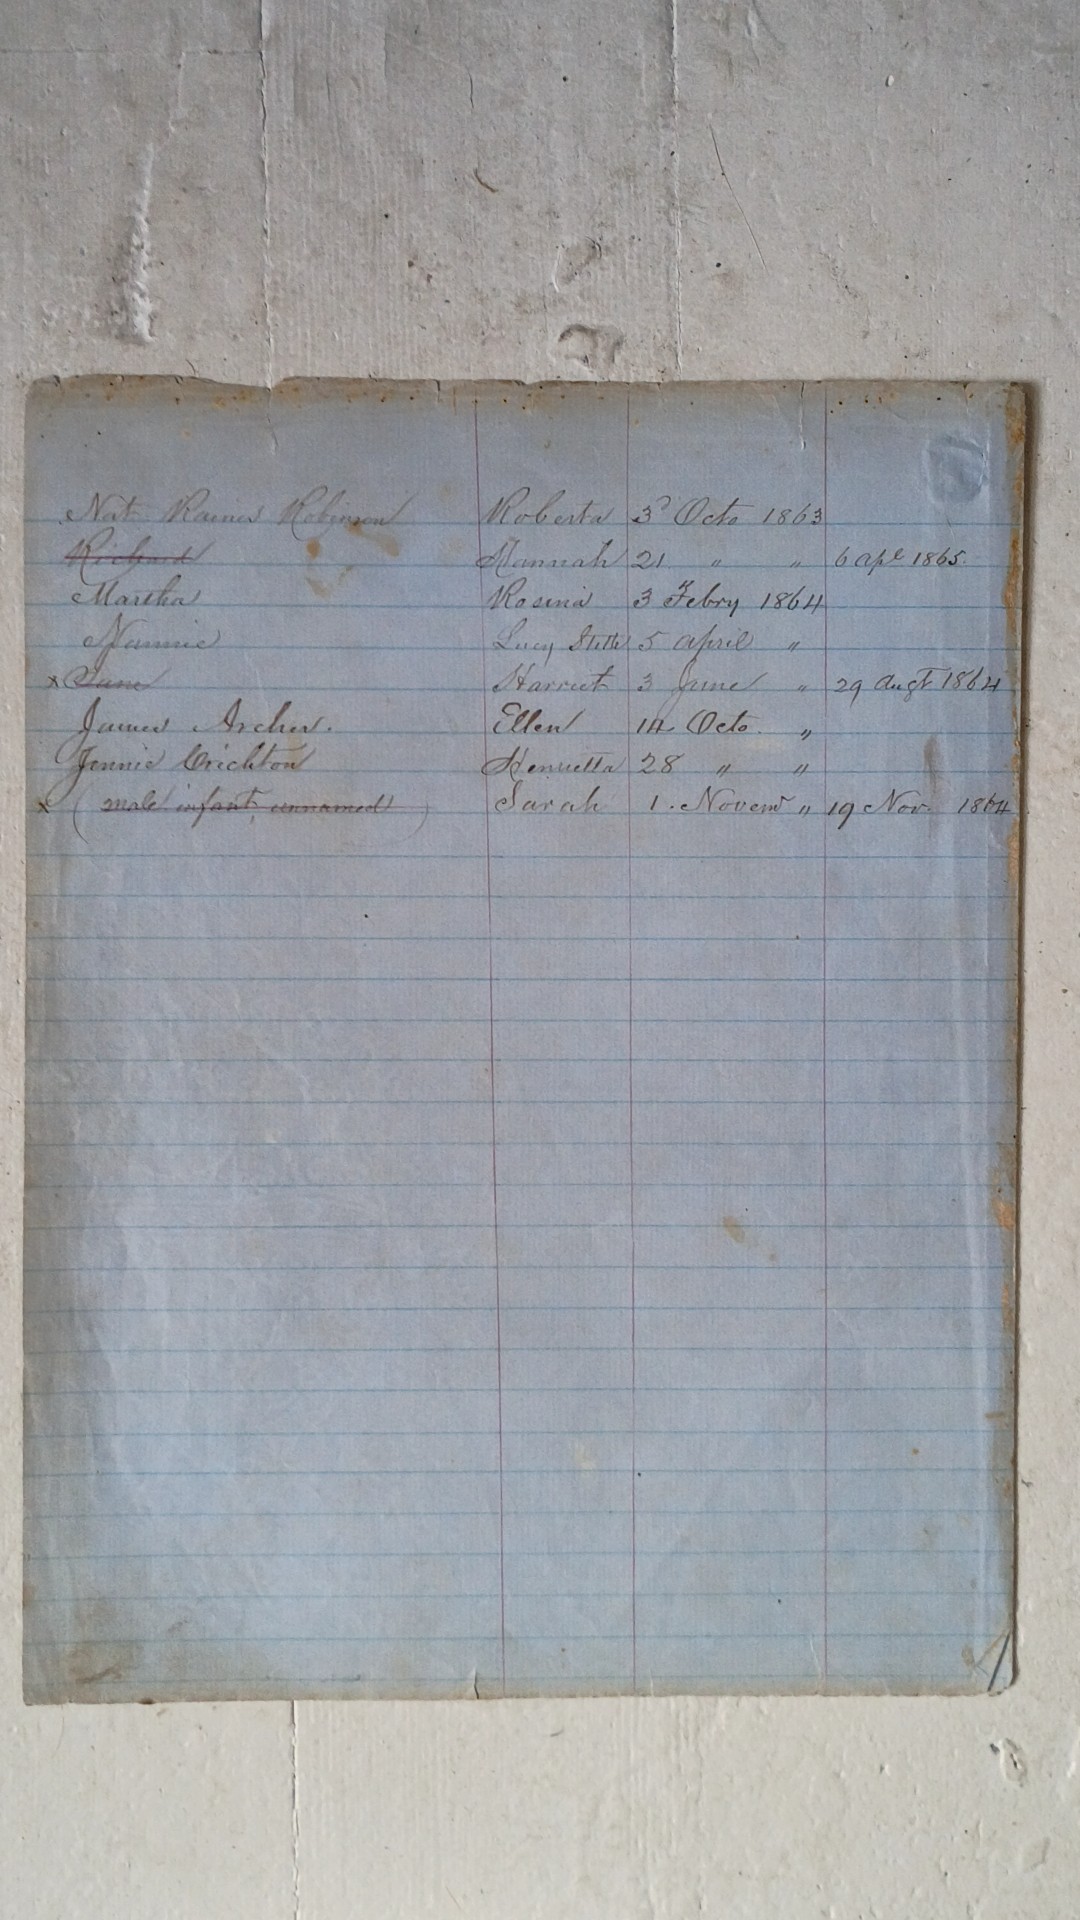 Nat Raines Robinson Roberta 3d Octo 1863
Richard Hannah 21 " " 6 apl 1865.
Martha Rosina 3 Febry 1864
Nannie Lucy Stith 5 april "
x Jane Harriet 3 June " 29 augt 1864
James Archer. Ellen 14 Octo. "
Jennie Crichton Henrietta 28 " "
x (male infant, unnamed) Sarah 1. Novem " 19 Nov. 1864